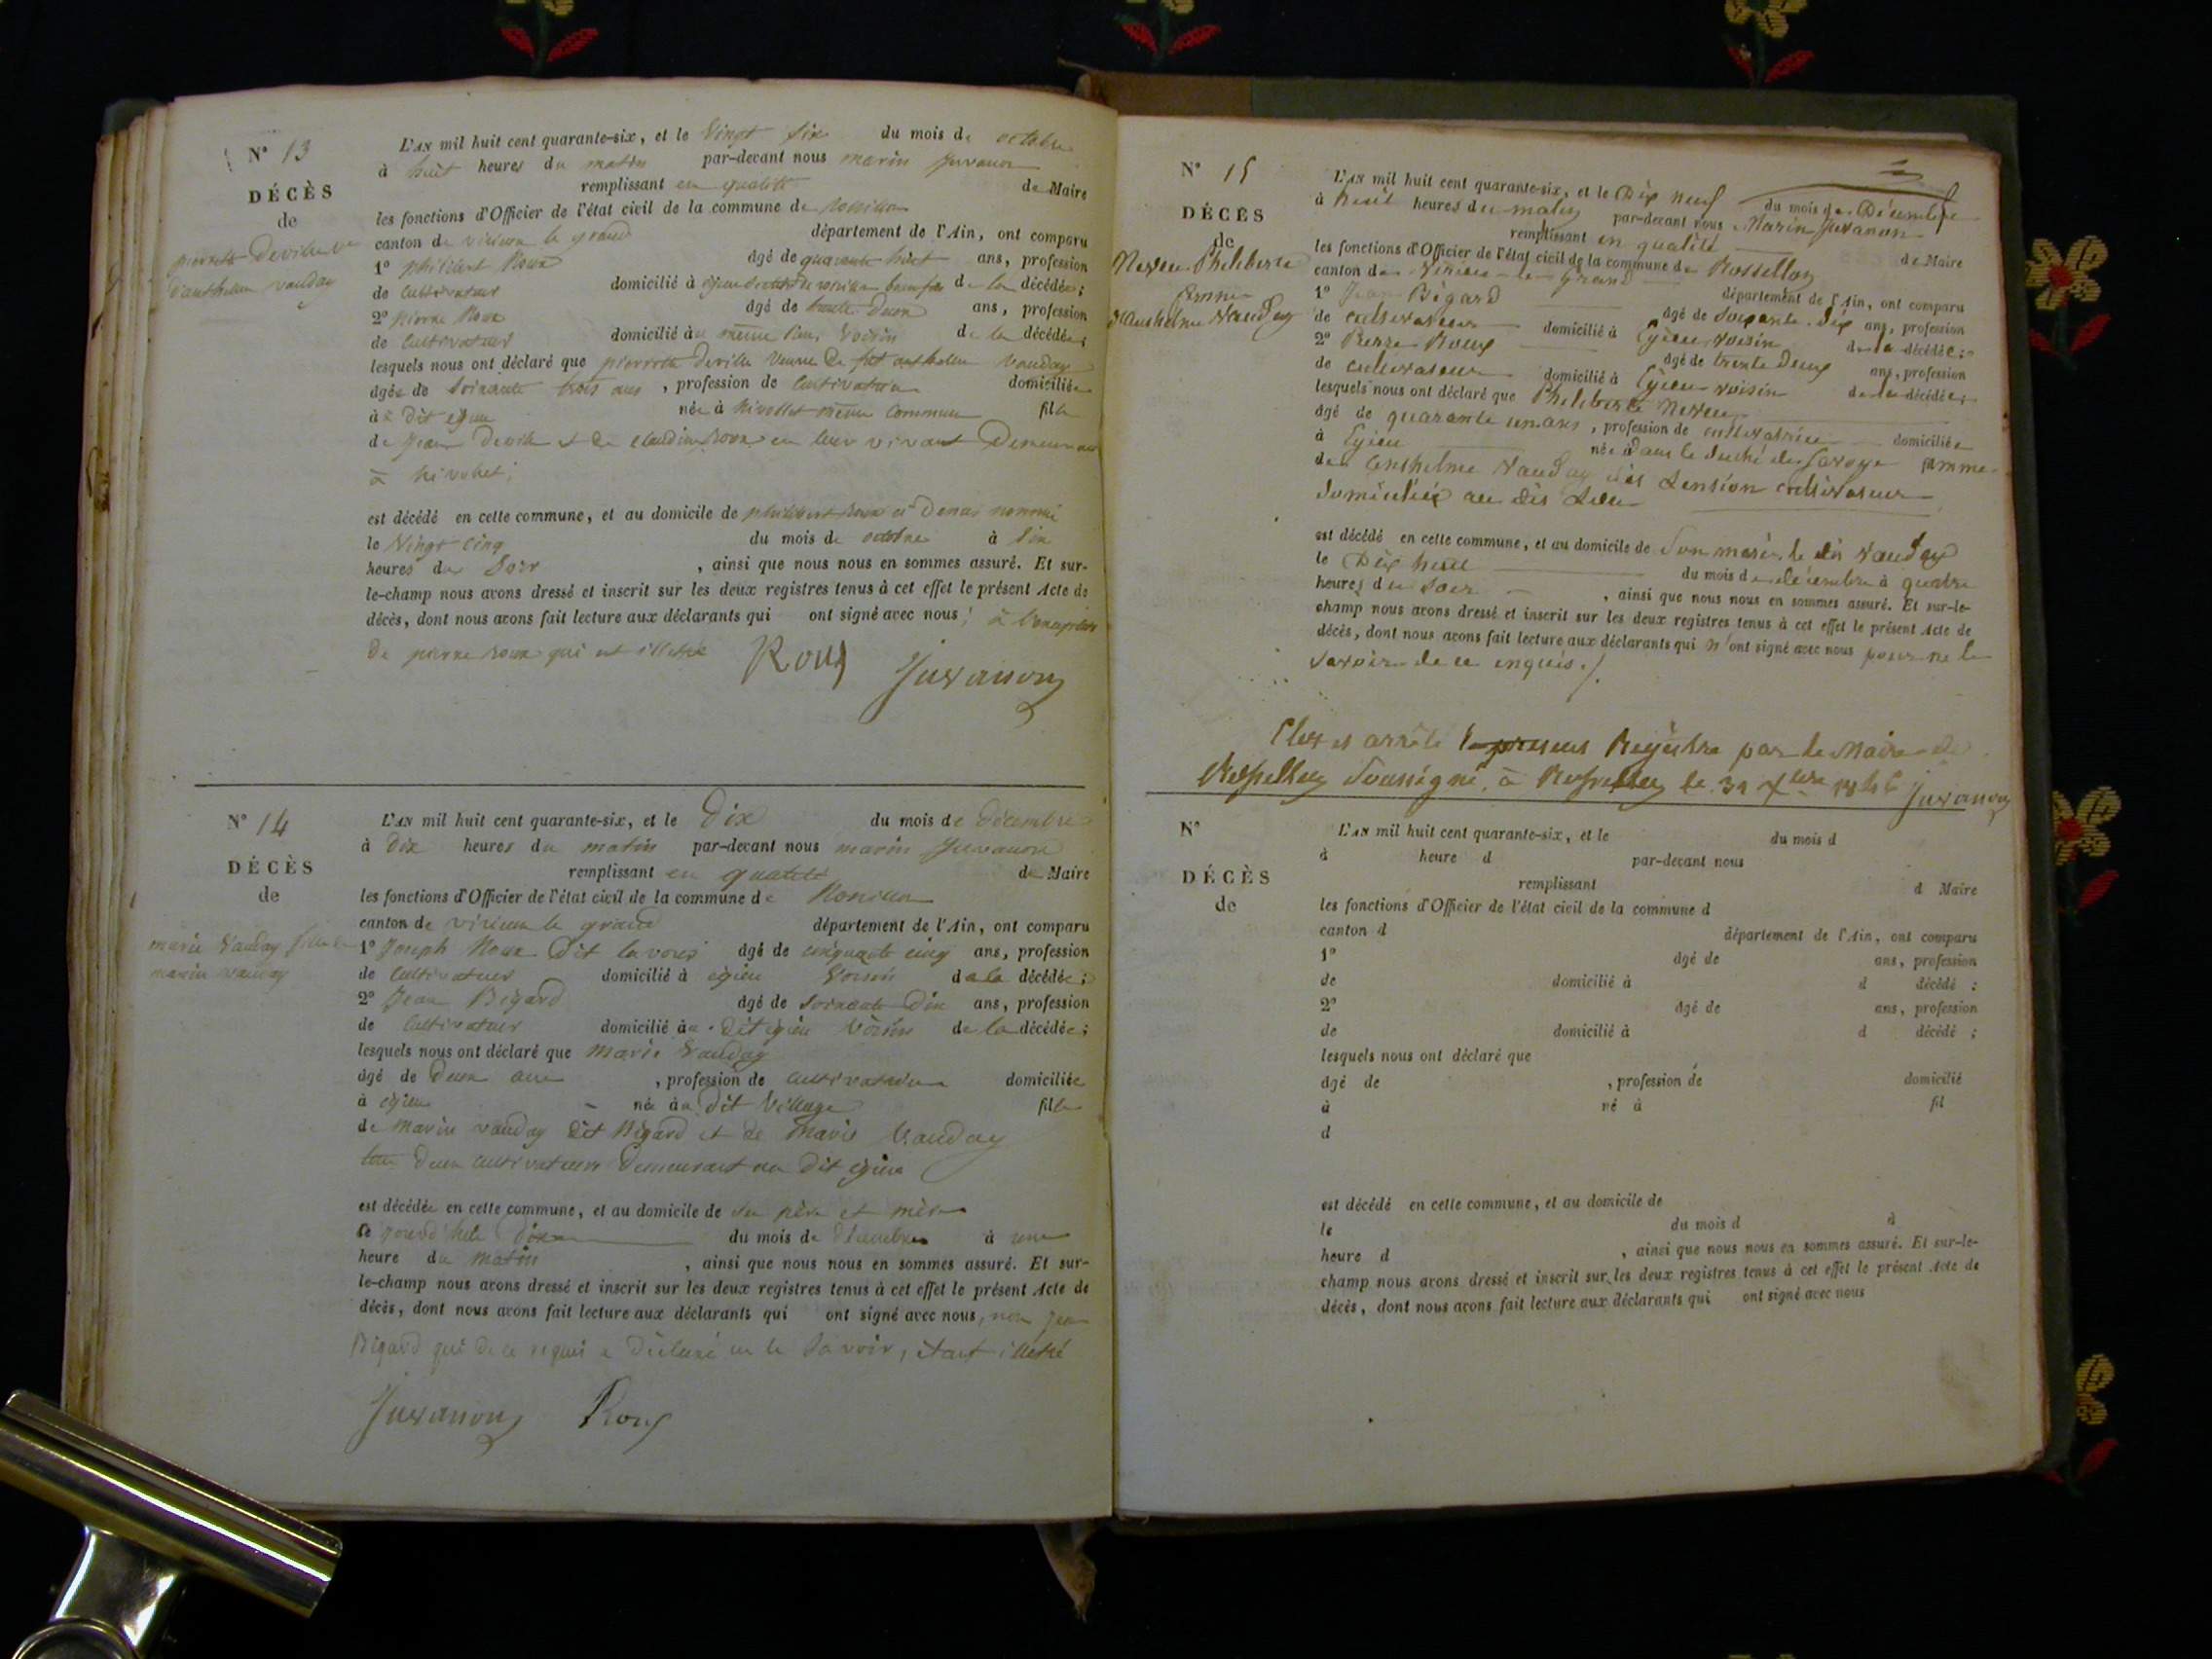 N° 13
DÉCÈS
de
pierrette Deville Ve
d'anthelme vauday
L'AN mil huit cent quarante-six, et le vingt six du mois de octobre
à huit heures du matin par-devant nous marin Juvanon
remplissant en qualité de Maire
les fonctions d'Officier de l'état civil de la commune de
canton de virieu le grand département de l'Ain, ont comparu
1° philibert Roux âgé de quarante huit ans, profession
de cultivateur domicilié à de la décédée;
2° pierre Roux âgé de trente deux ans, profession
de cultivateur domicilié au même lieu, voisin de la décédée;
lesquels nous ont déclaré que pierrette deville veuve de anthelme vauday
âgée de soixante trois ans, profession de cultivatrice domiciliée
à dit née à même commune fille
de Jean Deville et de claudine Roux en leur vivant Demeurant
à
est décédé en cette commune, et au domicile de philibert Roux ci Devant nommé
le vingt cinq du mois de octobre à six
heures du soir, ainsi que nous nous en sommes assuré. Et sur-
le-champ nous avons dressé et inscrit sur les deux registres tenus à cet effet le présent Acte de
décès, dont nous avons fait lecture aux déclarants qui ont signé avec nous; à l'exception
de pierre Roux qui est illettré Roux Juvanon
N° 14
DÉCÈS
de
marie Vauday fille de
marin vauday
L'AN mil huit cent quarante-six, et le Dix du mois de Décembre
à Dix heures du matin par-devant nous marin Juvanon
remplissant en qualité de Maire
les fonctions d'Officier de l'état civil de la commune de
canton de virieu le grand département de l'Ain, ont comparu
1° Joseph Roux Dit âgé de cinquante cinq ans, profession
de cultivateur domicilié à egieu Voisin de la décédée;
2° Jean Bigard âgé de soixante Dix ans, profession
de cultivateur domicilié au dit egieu Voisin de la décédée;
lesquels nous ont déclaré que marie Vauday
âgé de Deux ans, profession de cultivatrice domiciliée
à egieu née au Dit Village fille
de Marin vauday dit Bigard et de Marie Vauday
tous Deux cultivateurs Demeurant au Dit egieu
est décédée en cette commune, et au domicile de ses père et mère
le jourd'hui Dix du mois de Décembre à une
heure du matin, ainsi que nous nous en sommes assuré. Et sur-
le-champ nous avons dressé et inscrit sur les deux registres tenus à cet effet le présent Acte de
décès, dont nous avons fait lecture aux déclarants qui ont signé avec nous, non Jean
Bigard qui de ce requis a Déclaré ne le savoir, étant illettré
Juvanon Roux
N° 15
DÉCÈS
de
Philiberte
femme
d'Anthelme Vauday
L'AN mil huit cent quarante-six, et le Dix neuf du mois de Décembre
à huit heures du matin par-devant nous Marin Juvanon
remplissant en qualité de Maire
les fonctions d'Officier de l'état civil de la commune de Rossillon
canton de Virieu-le-Grand département de l'Ain, ont comparu
1° Jean Bigard âgé de soixante-dix ans, profession
de cultivateur domicilié à Egieu voisin de la décédée;
2° Pierre Roux âgé de trente deux ans, profession
de cultivateur domicilié à Egieu voisin de la décédée;
lesquels nous ont déclaré que Philiberte
âgé de quarante un ans, profession de cultivatrice domiciliée
à Egieu née dans le duché de Savoye femme
de Anthelme Vauday cultivateur
domicilié au dis Lieu
est décédé en cette commune, et au domicile de son mari, le dit Vauday
le Dix huit du mois de décembre à quatre
heures du soir, ainsi que nous nous en sommes assuré. Et sur-le-
champ nous avons dressé et inscrit sur les deux registres tenus à cet effet le présent Acte de
décès, dont nous avons fait lecture aux déclarants qui n'ont signé avec nous pour ne le
savoir de ce enquis./.
Clos et arrêté le present Registre par le Maire de
Rossillon Soussigné, à Rossillon le 31 Xbre 1846 Juvanon
N°
DÉCÈS
de
L'AN mil huit cent quarante-six, et le du mois d
à heure d par-devant nous
remplissant d Maire
les fonctions d'Officier de l'état civil de la commune d
canton d département de l'Ain, ont comparu
1° âgé de ans, profession
de domicilié à d décédé ;
2° âgé de ans, profession
de domicilié à d décédé ;
lesquels nous ont déclaré que
âgé de , profession de domicilié
à né à fil
d
est décédé en cette commune, et au domicile de
le du mois d à
heure d , ainsi que nous nous en sommes assuré. Et sur-le-
champ nous avons dressé et inscrit sur les deux registres tenus à cet effet le présent Acte de
décès, dont nous avons fait lecture aux déclarants qui ont signé avec nous